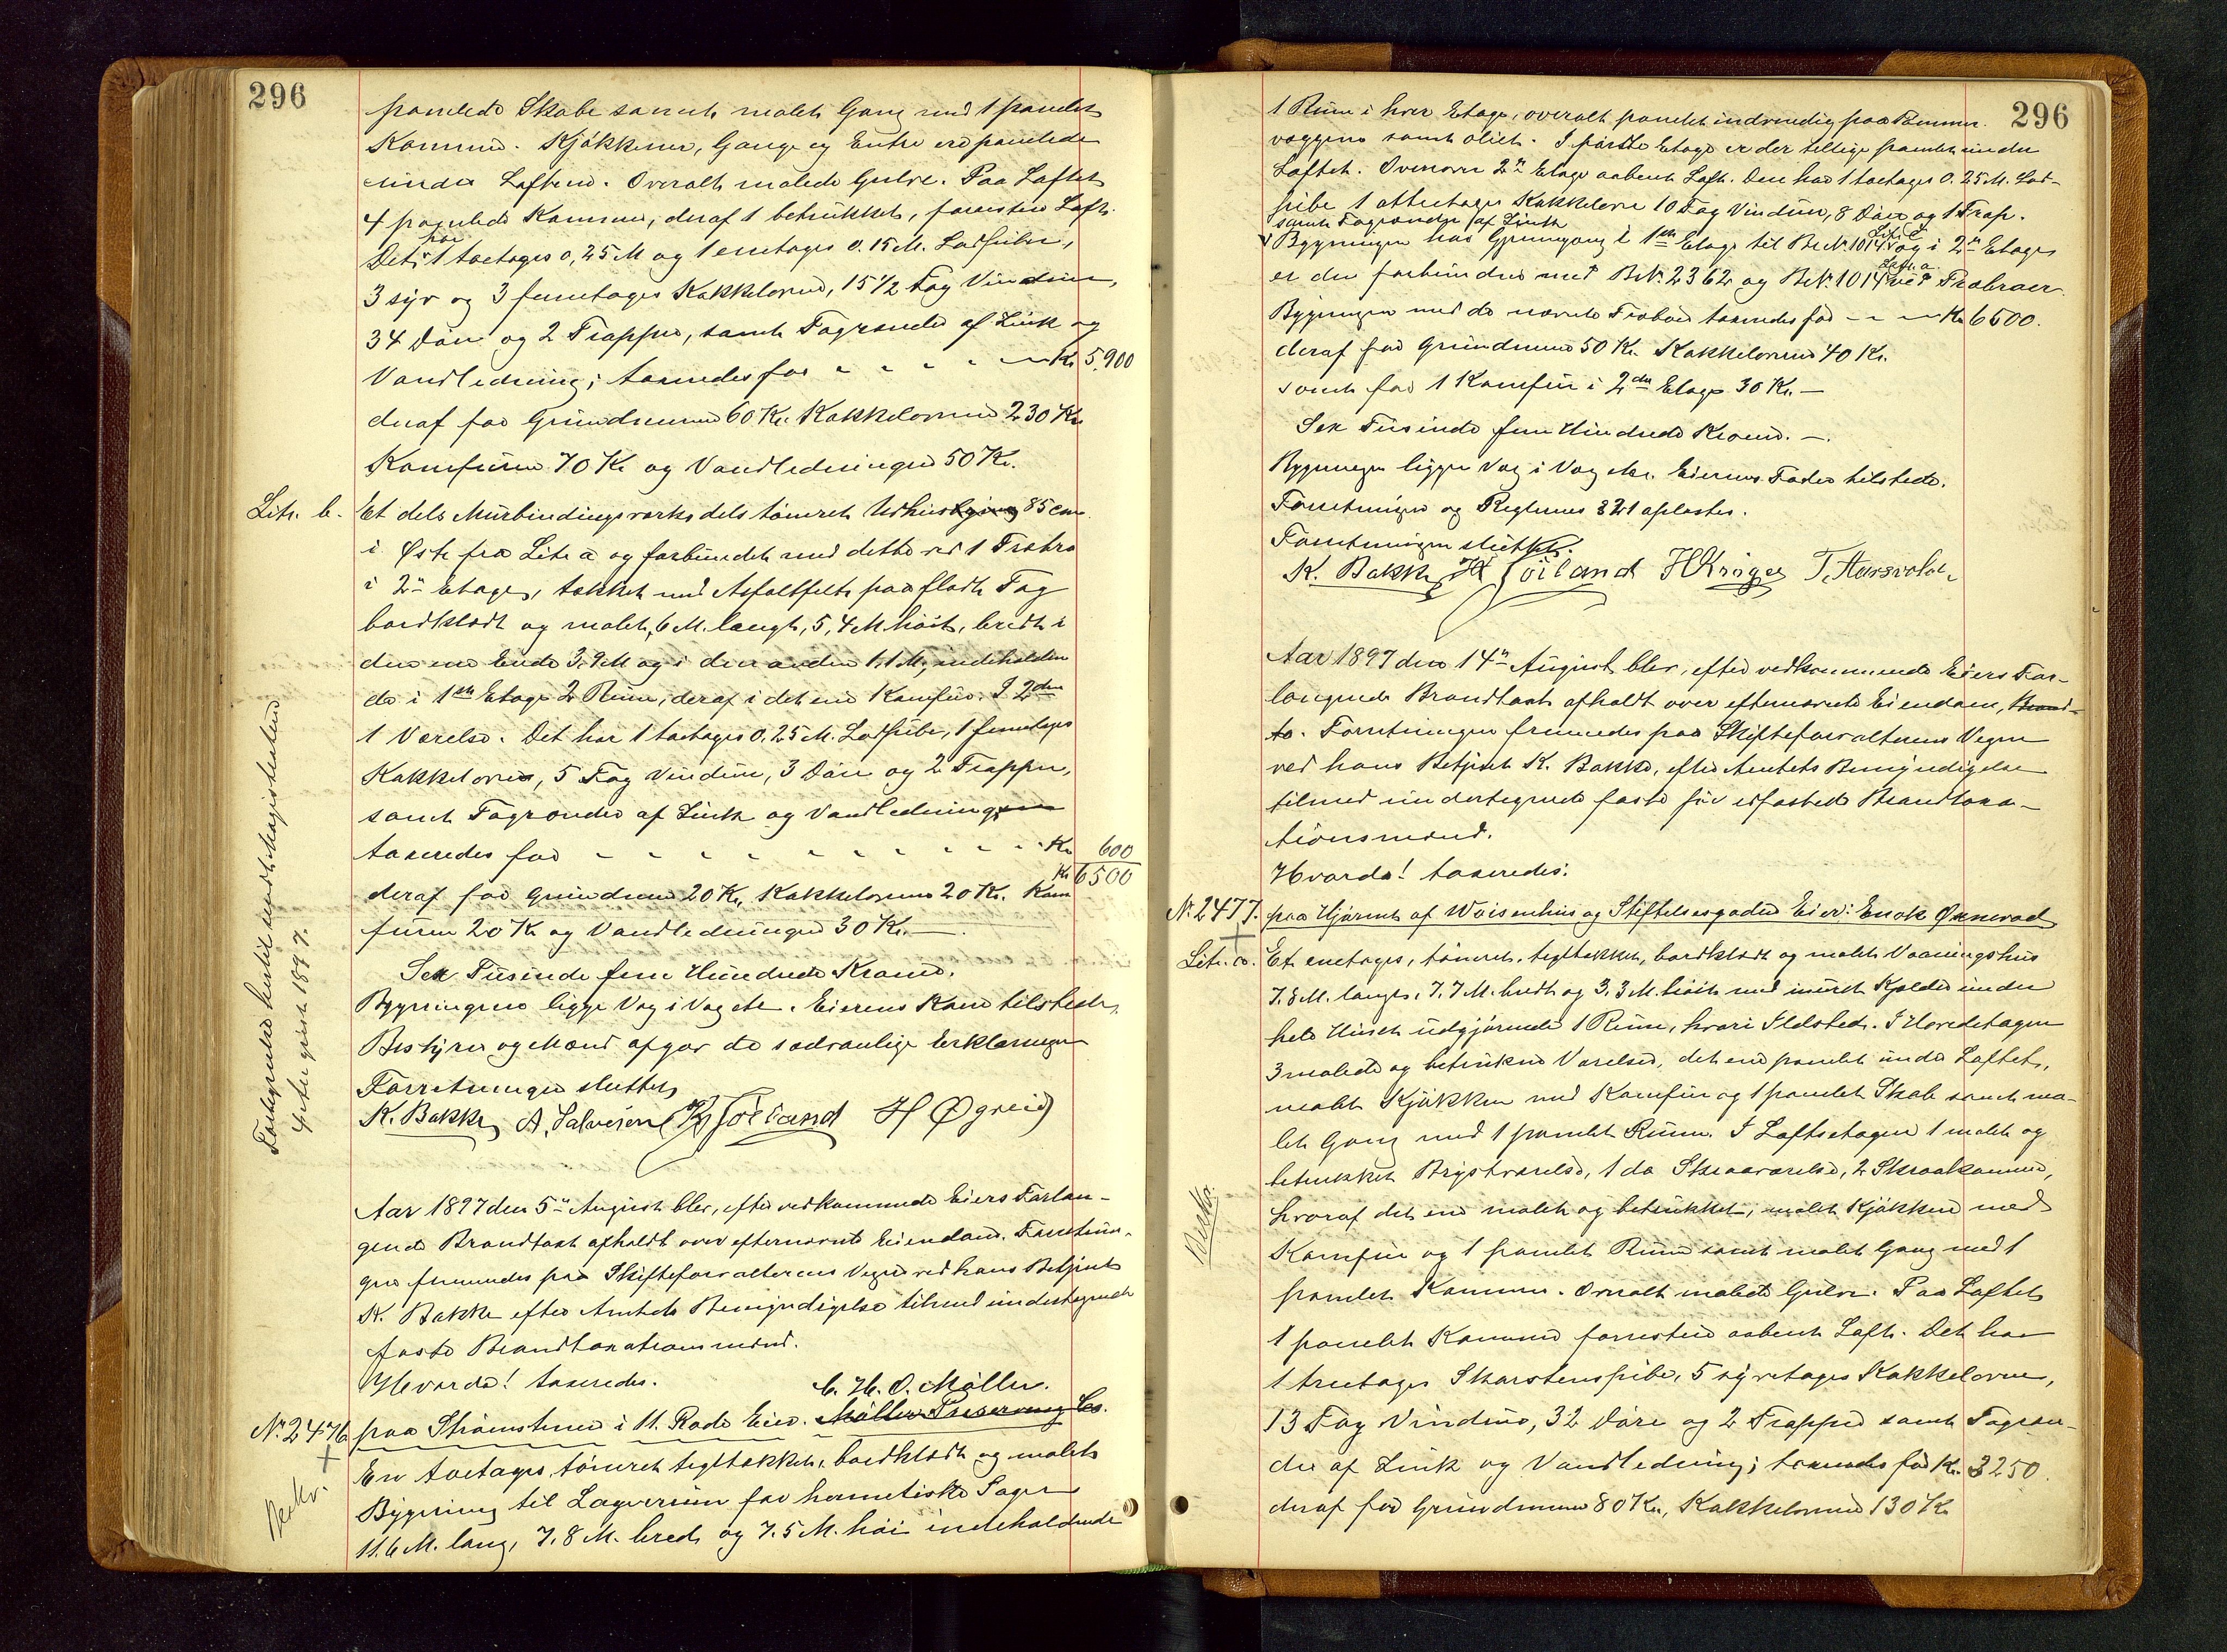 296
panelede Skabe samt malet Gang med 1 panelet
Kammer. Kjøkkener, Gange og Entre ere panelede
under Loftene. Overalt malede Gulve. Paa Loftet
4 panelede Kammer, deraf 1 betrukket, forresten Loft.
Det har 1 toetages 0,25 M og 1 enetages 0.15 M. Lodpiber,
3 syv og 3 femetages Kakkelovne, 15 1/2 Fag Vinduer,
34 Døre og 2 Trapper, samt Tagrender af Zink og
Vandledning; taxeredes for - - - - Kr 5,900
deraf for Grundmur 60 Kr. Kakkelovne 230 Kr
Komfurer 70 Kr og Vandledningen 50 Kr.
Litr. b. Et dels Murbindingsværks dels tømret Udhus 85 cm.
i Øst fra Litr a og forbundet med dette ved 1 Træbro
i 2n Etage, tækket med Asfaltfilt paa fladt Tag
bordklædt og malet, 6 M. langt, 5,4 M. høit, bredt i
den ene Ende 3,9 M og i den anden 1,1 M, indeholden
de i 1ste Etage 2 Rum, deraf i det ene Komfur. I 2den
1 Værelse. Det har 1 toetages 0.25 M. Lodpibe, 1 femetages
Kakkelovn, 5 Fag Vinduer, 3 Døre og 2 Trapper,
samt Tagrender af Zink og Vandledning
taxeredes for - - - - - - - - - Kr 600
Kr 6500
deraf for Grundmur 20 Kr, Kakkelovne 20 Kr. Kom
furer 20 Kr og Vandledningen 30 Kr. —
Sex Tusinde fem Hundrede Kroner.
Bygningerne ligge Væg i Væg etc. Eierens Kone tilstede,
Bestyrer og Mænd afgav de sædvanlige Erklæringer
Forretningen sluttet,
K. Bakke A. Salvesen Høiland H Øgreid
Aar 1897 den 5n August blev, efter vedkommende Eiers Forlan-
gende Brandtaxt afholdt over efternævnte Eiendom. Forretnin-
gen fremmedes paa Skifteforvalterens Vegne ved hans Betjent
K. Bakke efter Amtets Bemyndigelse tilmed undertegnede
faste Brandtaxationsmænd.
Hvorda! taxeredes.
C. H. O. Møller.
No 2476 paa Strømsteen i 11. Rode Eier. Møllers Preserving Co.
En toetages, tømret, tegltækket, bordklædt og malet
Bygning til Lagerrum for hermetiske Sager
11.6 M. lang, 7,8 M. bred og 7.5 M. høi indeholdende
Beskr.
4de August 1897.
296
1 Rum i hver Etage, overalt panelet indvendig paa Tømmer-
væggene samt oliet. I første Etage er der tillige panelet under
Loftet. Ovenover 2n Etage aabent Loft. Den har 1 toetages 0.25 M. Lod-
pibe 1 Kakkelovn 10 Fag Vinduer, 8 Døre og 1 Trap.
samt Tagrender af Zink
Bygningen har Gjennemgang i 1ste Etage til Br No 1014 Litr. C og i 2n Etage
er den forbundne med Br No. 2362 og Br No. 1014 Litr. a ved Træbroer.
Bygningen med de nævnte Træbroer taxeredes for - - - Kr 6500.
deraf for Grundmur 50 Kr. Kakkelovne 40 Kr.
samt for 1 Komfur i 2den Etage 30 Kr. —
Sex Tusinde fem Hundrede Kroner. —.
Bygningen ligger Væg i Væg etc. Eierens Fader tilstede.
Forretningen og Reglernes § 21 oplæstes.
Forretningen sluttet.
K. Bakke Høiland H Krøger T. Aarsvold
Aar 1897 den 14n August blev, efter vedkommende Eiers For-
langende Brandtaxt afholdt over efternævnte Eiendom, Brand-
to. Forretningen fremmedes paa Skifteforvalterens Vegne
ved hans Betjent K. Bakke, efter Amtets Bemyndigelse
tilmed undertegnede faste før edfæstede Brandtaxa-
tionsmænd.
Hvorda! taxeredes:
No. 2477. paa Hjørnet af Waisenhus og Stiftelsesgaden Eier: Enok Øxnevad
Litr. a. Et enetages, tømret, tegltækket, bordklædt og malet Vaaningshus
7.8 M. langt, 7.7 M. bredt og 3.3 M. høit med muret Kjelder under
hele Huset udgjørende 1 Rum, hvori Ildsted. I Hovedetagen
3 malede og betrukne Værelser, det ene panelet under Loftet,
malet Kjøkken med Komfur og 1 panelet Skab samt ma-
let Gang med 1 panelet Rum. I Loftsetagen 1 malet og
betrukket Brystværelse, 1 do Skraaværelse, 2 Skraakammer,
hvoraf det ene malet og betrukket, malet Kjøkken med
Komfur og 1 panelet Rum samt malet Gang med 1
panelet Kammer. Overalt malede Gulve. Paa Loftet
1 panelet Kammer forresten aabent Loft. Det har
1 treetages Skorstenspibe, 5 syvetages Kakkelovne,
13 Fag Vinduer, 32 Døre og 2 Trapper samt Tagren-
der af Zink og Vandledning; taxeredes for Kr. 3250.
deraf for Grundmur 80 Kr., Kakkelovne 130 Kr
Beskr.